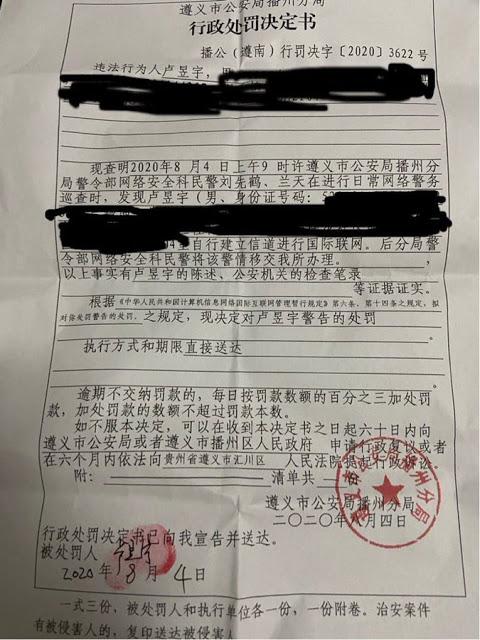 遵义市公安局播州分局
行政处罚决定书
播公（遵南）行罚决字〔2020〕3622 号
违法行为人卢昱宇，男
现查明2020年8月4日上午9时许遵义市公安局播州分
局警令部网络安全科民警刘先鹤、兰天在进行日常网络警务
巡查时，发现卢昱宇（男、身份证号码：
自行建立信道进行国际联网。后分局警
令部网络安全科民警将该警情移交我所办理。
以上事实有卢昱宇的陈述、公安机关的检查笔录
等证据证实。
根据《中华人民共和国计算机信息网络国际互联网管理暂行规定》第六条、第十四条之规定，拟
对你处罚警告的处罚。之规定，现决定对卢昱宇警告的处罚
执行方式和期限直接送达
逾期不交纳罚款的，每日按罚款数额的百分之三加处罚
款，加处罚款的数额不超过罚款本数。
如不服本决定，可以在收到本决定书之日起六十日内向
遵义市公安局或者遵义市播州区人民政府 申请行政复议或者
在六个月内依法向贵州省遵义市汇川区 人民法院提起行政诉讼。
附： 清单共
遵义市公安局播州分局
二〇二〇年八月四日
行政处罚决定书已向我宣告并送达。
被处罚人
2020 年 8 月 4 日
一式三份，被处罚人和执行单位各一份，一份附卷。治安案件
有被侵害人的，复印送达被侵害人